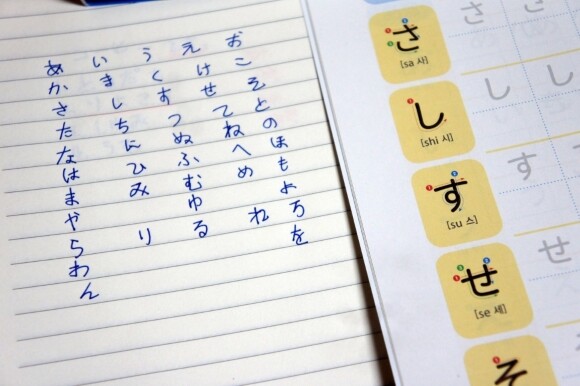 あ い う え お
か き く け こ
さ し す せ そ
た ち つ て と
な に ぬ ね の
は ひ ふ へ ほ
ま み む め も
や ゆ よ
ら り る れ ろ
わ を
ん
さ さ さ
[sa 사]
し し し
[shi 시]
す す す
[su 스]
せ せ
[se 세]
そ